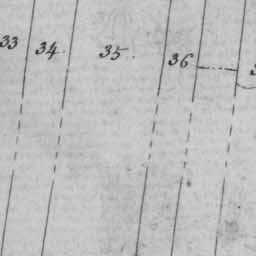 33 34. 35. 36